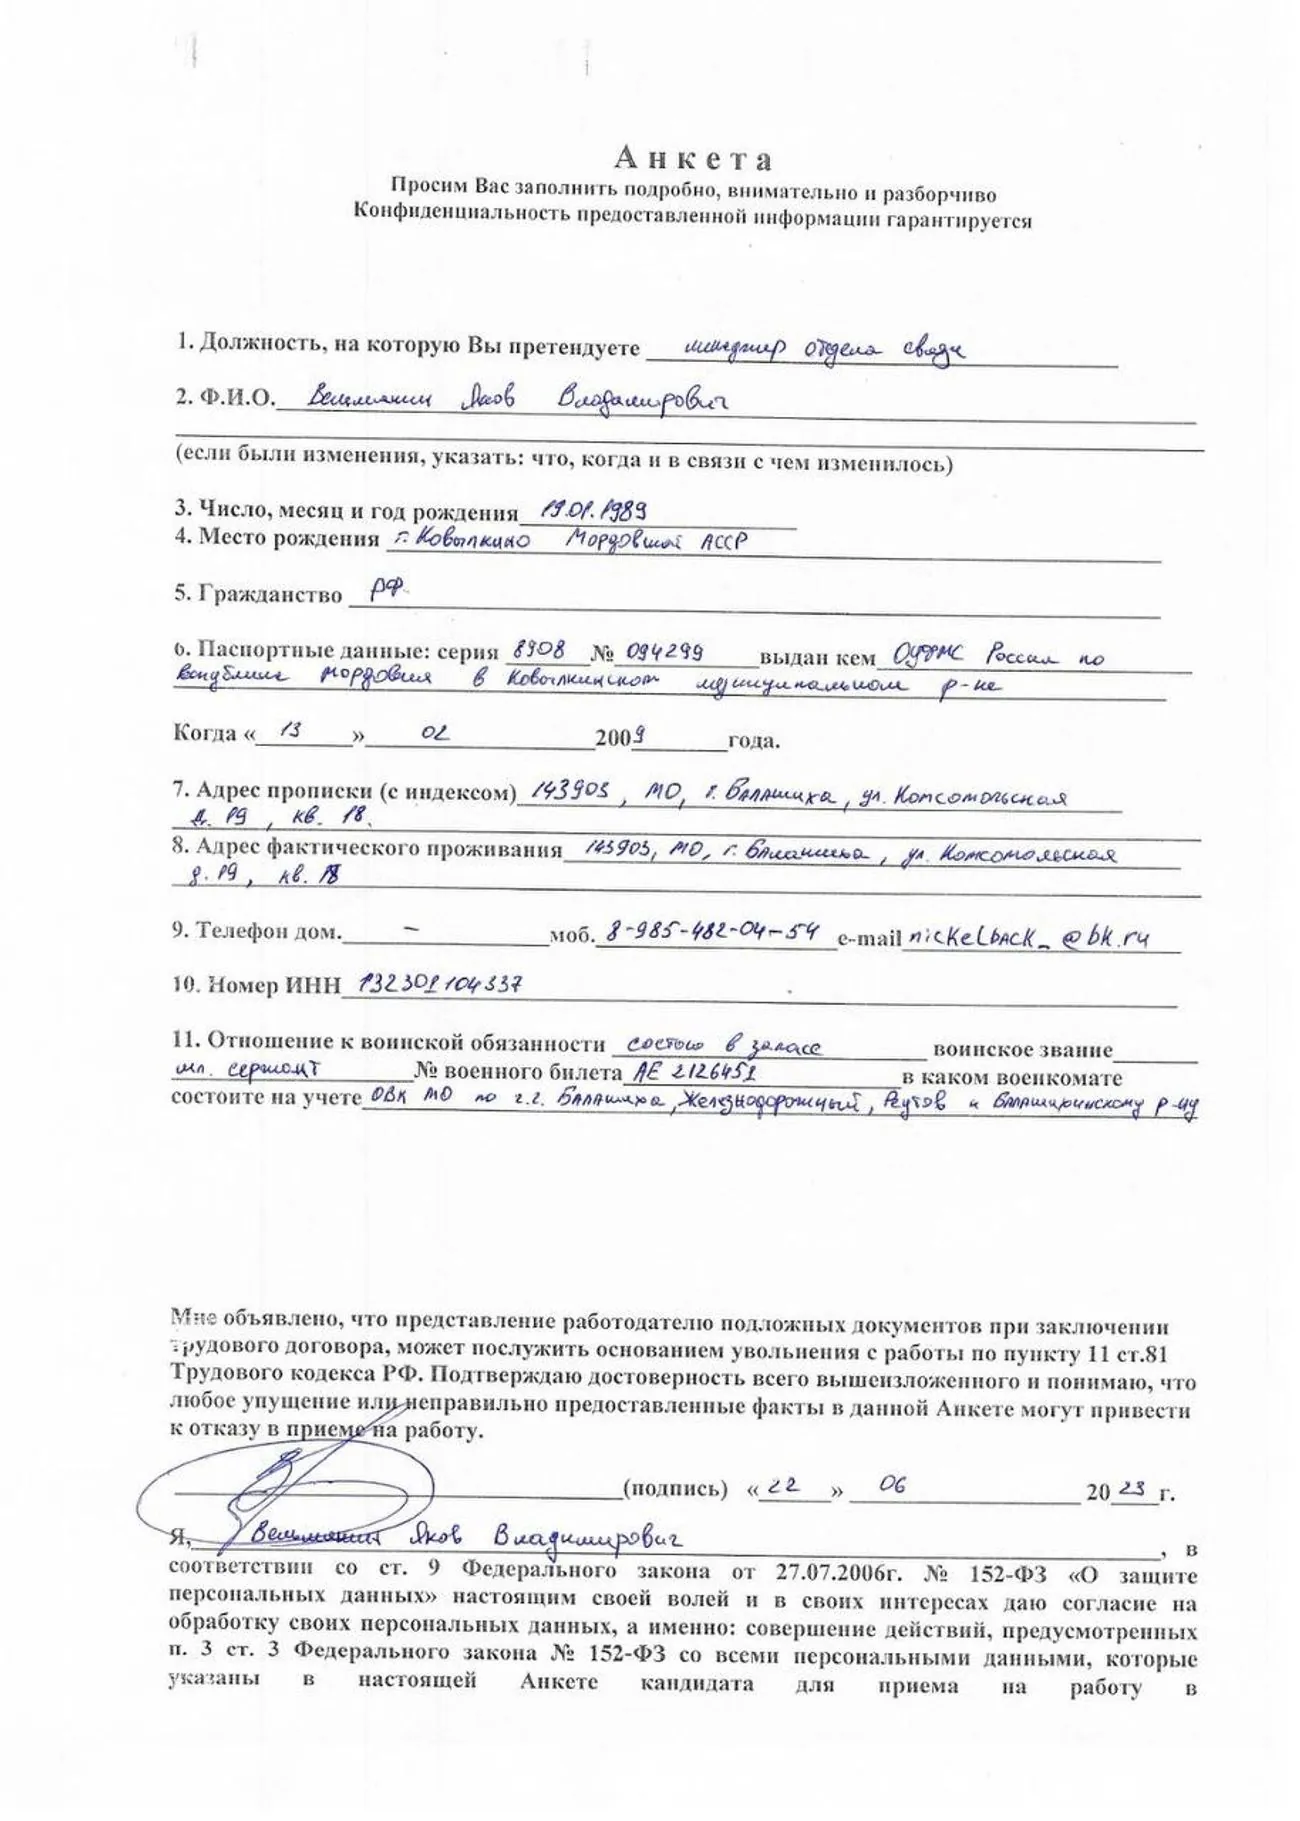 Анкета
Просим Вас заполнить подробно, внимательно и разборчиво
Конфиденциальность предоставленной информации гарантируется
1. Должность, на которую Вы претендуете менеджер отдела связи
2. Ф.И.О. Вельмянин Яков Владимирович
(если были изменения, указать: что, когда и в связи с чем изменилось)
3. Число, месяц и год рождения 19.01.1989
4. Место рождения г. Ковылкино Мордовской АССР
5. Гражданство РФ
6. Паспортные данные: серия 8908 № 094299 выдан кем ОУФМС России по
республике Мордовия в Ковылкинском муниципальном р-не
Когда « 13 » 02 2009 года.
7. Адрес прописки (с индексом) 143903, МО, г. Балашиха, ул. Комсомольская
д. 19, кв. 18.
8. Адрес фактического проживания 143903, МО, г. Балашиха, ул. Комсомольская
д. 19, кв. 18
9. Телефон дом. – моб. 8-985-482-04-54 e-mail nickelback_@bk.ru
10. Номер ИНН 132301104337
11. Отношение к воинской обязанности состою в запасе воинское звание
мл. сержант № военного билета АЕ 2126451 в каком военкомате
состоите на учете ОВК МО по г.г. Балашиха, Железнодорожный, Реутов и Балашихинскому р-ну
Мне объявлено, что представление работодателю подложных документов при заключении
трудового договора, может послужить основанием увольнения с работы по пункту 11 ст.81
Трудового кодекса РФ. Подтверждаю достоверность всего вышеизложенного и понимаю, что
любое упущение или неправильно предоставленные факты в данной Анкете могут привести
к отказу в приеме на работу.
(подпись) « 22 » 06 2023 г.
Я, Вельмянин Яков Владимирович, в
соответствии со ст. 9 Федерального закона от 27.07.2006г. № 152-ФЗ «О защите
персональных данных» настоящим своей волей и в своих интересах даю согласие на
обработку своих персональных данных, а именно: совершение действий, предусмотренных
п. 3 ст. 3 Федерального закона № 152-ФЗ со всеми персональными данными, которые
указаны в настоящей Анкете кандидата для приема на работу в